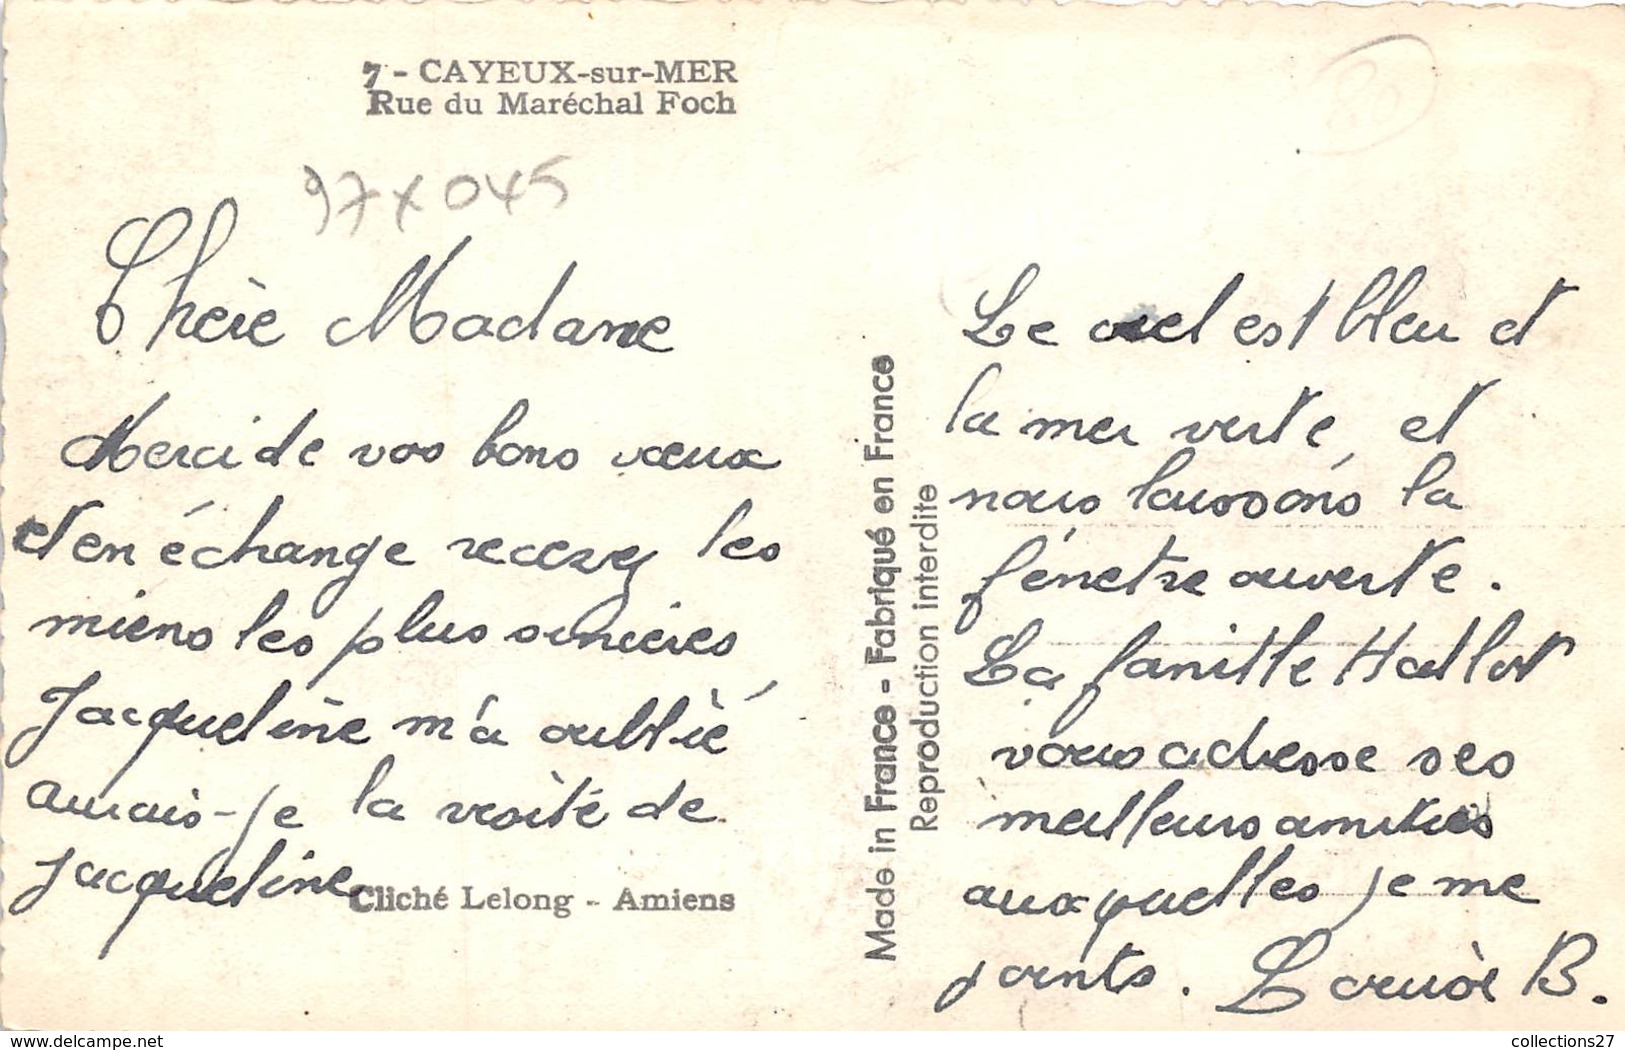 7 - CAYEUX-sur-MER
Rue du Maréchal Foch
97 x 045
Chère Madame
Merci de vos bons voeux
et en échange recevez les
miens les plus sincères
Jacqueline m'a oublié
aurais-je la visite de
Jacqueline
Cliché Lelong - Amiens
Made in France - Fabriqué en France
Reproduction interdite
Le ciel est bleu et
la mer verte, et
nous laissons la
fenêtre ouverte.
La famille Hallot
vous adresse ses
meilleurs amitiés
auxquelles je me
joints. Louise B.
delcampe.net
collections27